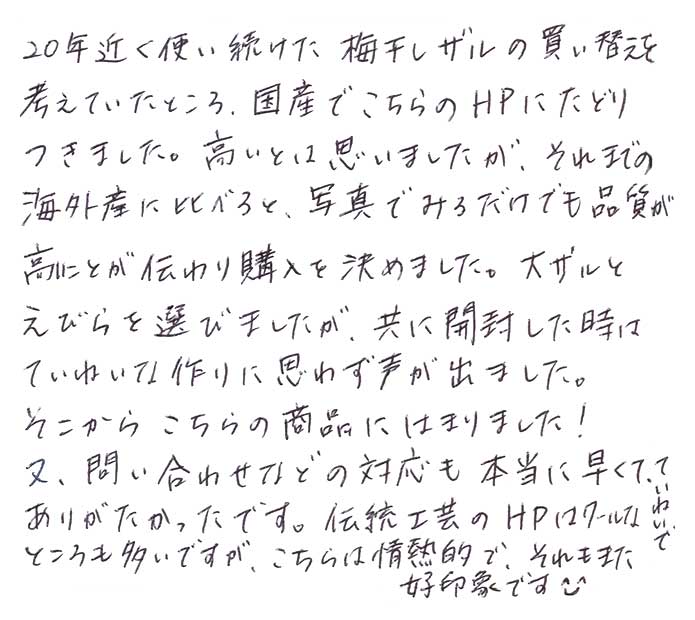 20年近く使い続けた 梅干しザルの買い替えを
考えていたところ、国産でこちらのHPにたどり
つきました。高いとは思いましたが、それまでの
海外産に比べると、写真でみるだけでも品質が
高いことが伝わり購入を決めました。大ザルと
えびらを選びましたが、共に開封した時は
ていねいな作りに思わず声が出ました。
そこからこちらの商品にはまりました!
又、問い合わせなどの対応も本当に早くて、ていねいで
ありがたかったです。伝統工芸のHPはクールな
ところも多いですが、こちらは情熱的で、それもまた
好印象です